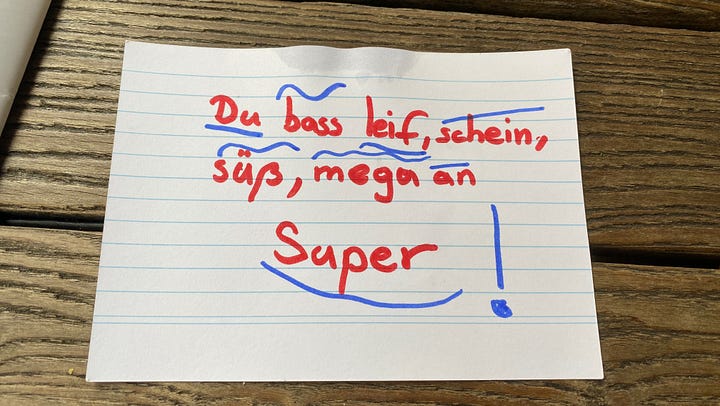 Du bass leif, schein,
süß, mega an
Super !